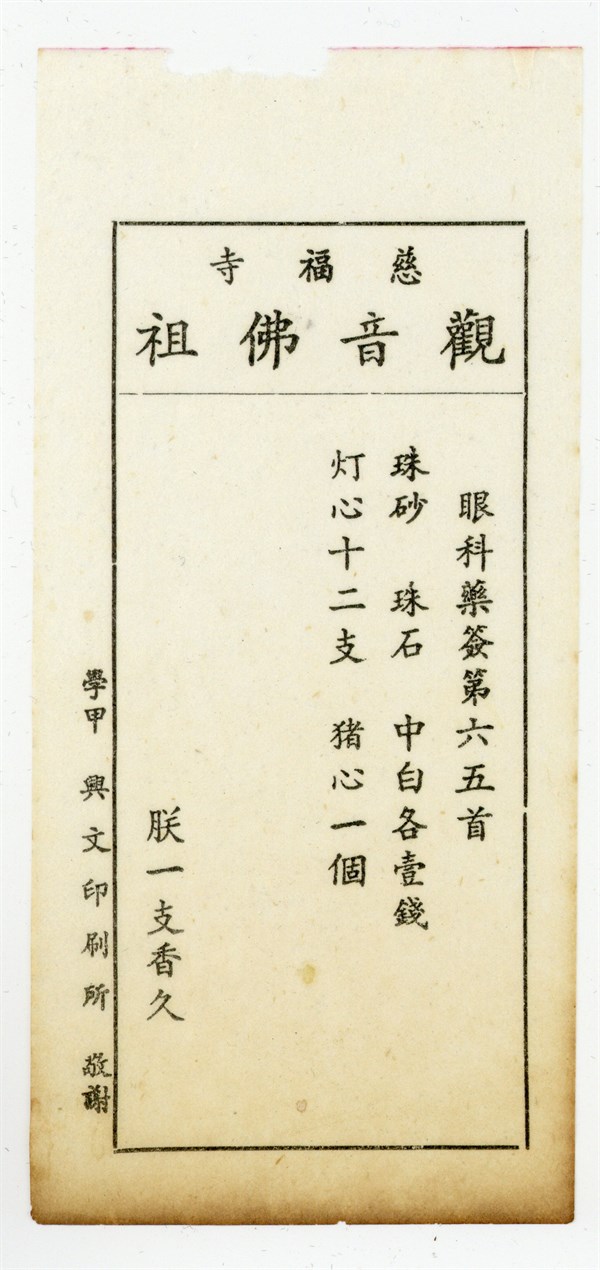 慈福寺
觀音佛祖
眼科藥簽第六五首
珠砂 珠石 中白各壹錢
灯心十二支 猪心一個
朕一支香久
學甲 興文印刷所 敬謝